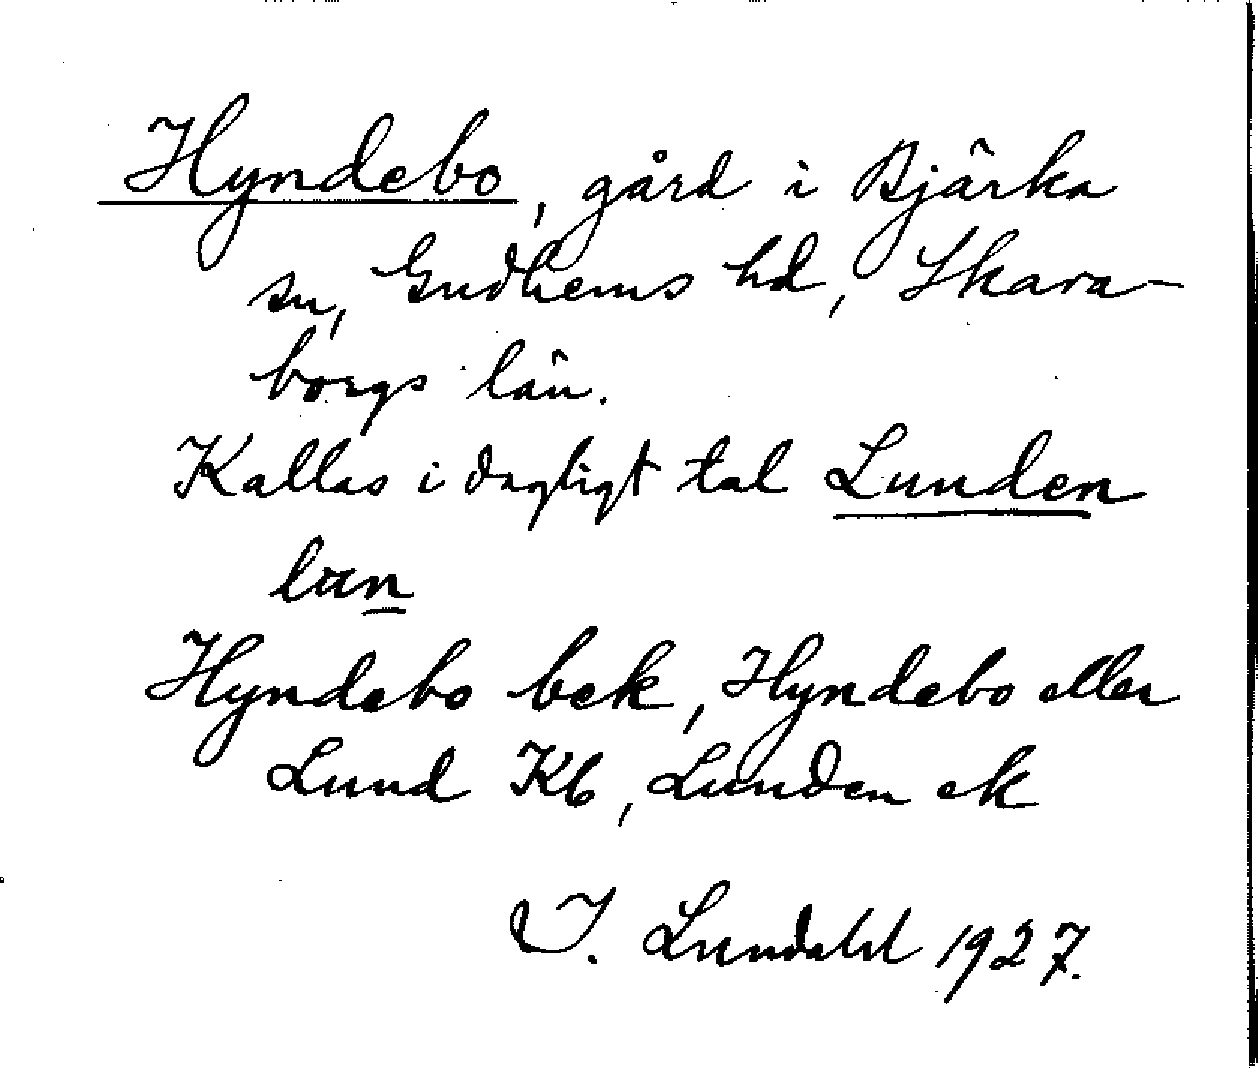 Hyndebo, gård i Bjärka
sn, Gudhems hd, Skara-
borgs län.
Kallas i dagligt tal Lunden
lun
Hyndebo bek, Hyndebo eller
Lund Kb, Lunden ek
I. Lundahl 1927.